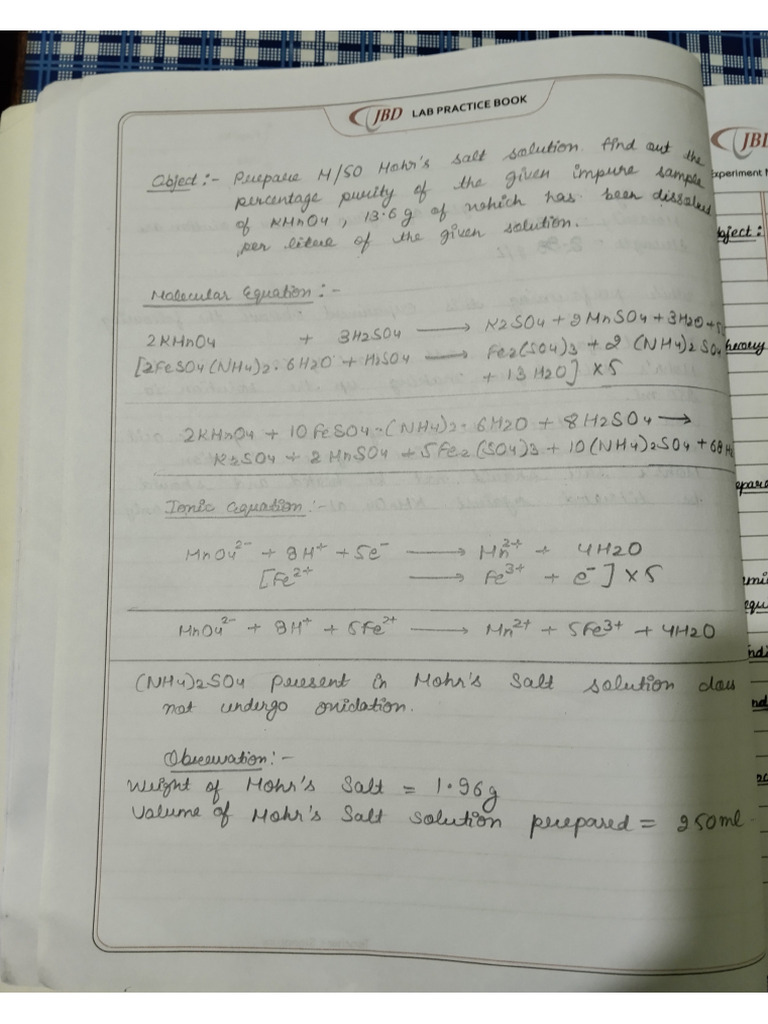 JBD LAB PRACTICE BOOK
Object :- Prepare M/50 Mohr's salt solution. find out the
percentage purity of the given impure sample
of KMnO4, 13.6g of which has been dissolved
per litere of the given solution.
Molecular Equation :-
2KMnO4 + 3H2SO4 ⟶ K2SO4 + 2MnSO4 + 3H2O +
[2FeSO4(NH4)2. 6H2O + H2SO4 ⟶ Fe2(SO4)3 + 2 (NH4)2SO4
+ 13 H2O] x 5
2KMnO4 + 10FeSO4-(NH4)2. 6H2O + 8H2SO4 ⟶
K2SO4 + 2MnSO4 + 5Fe2(SO4)3 + 10(NH4)2SO4 + 68
Ionic equation :-
MnO4²⁻ + 8H⁺ + 5e⁻ ⟶ Mn²⁺ + 4H2O
[Fe²⁺ ⟶ Fe³⁺ + e⁻] x 5
MnO4²⁻ + 8H⁺ + 5Fe²⁺ ⟶ Mn²⁺ + 5Fe³⁺ + 4H2O
(NH4)2SO4 present in Mohr's Salt solution does
not undergo oxidation.
Observation :-
Weight of Mohr's Salt = 1.96g
Volume of Mohr's Salt solution prepared = 250ml
JBD